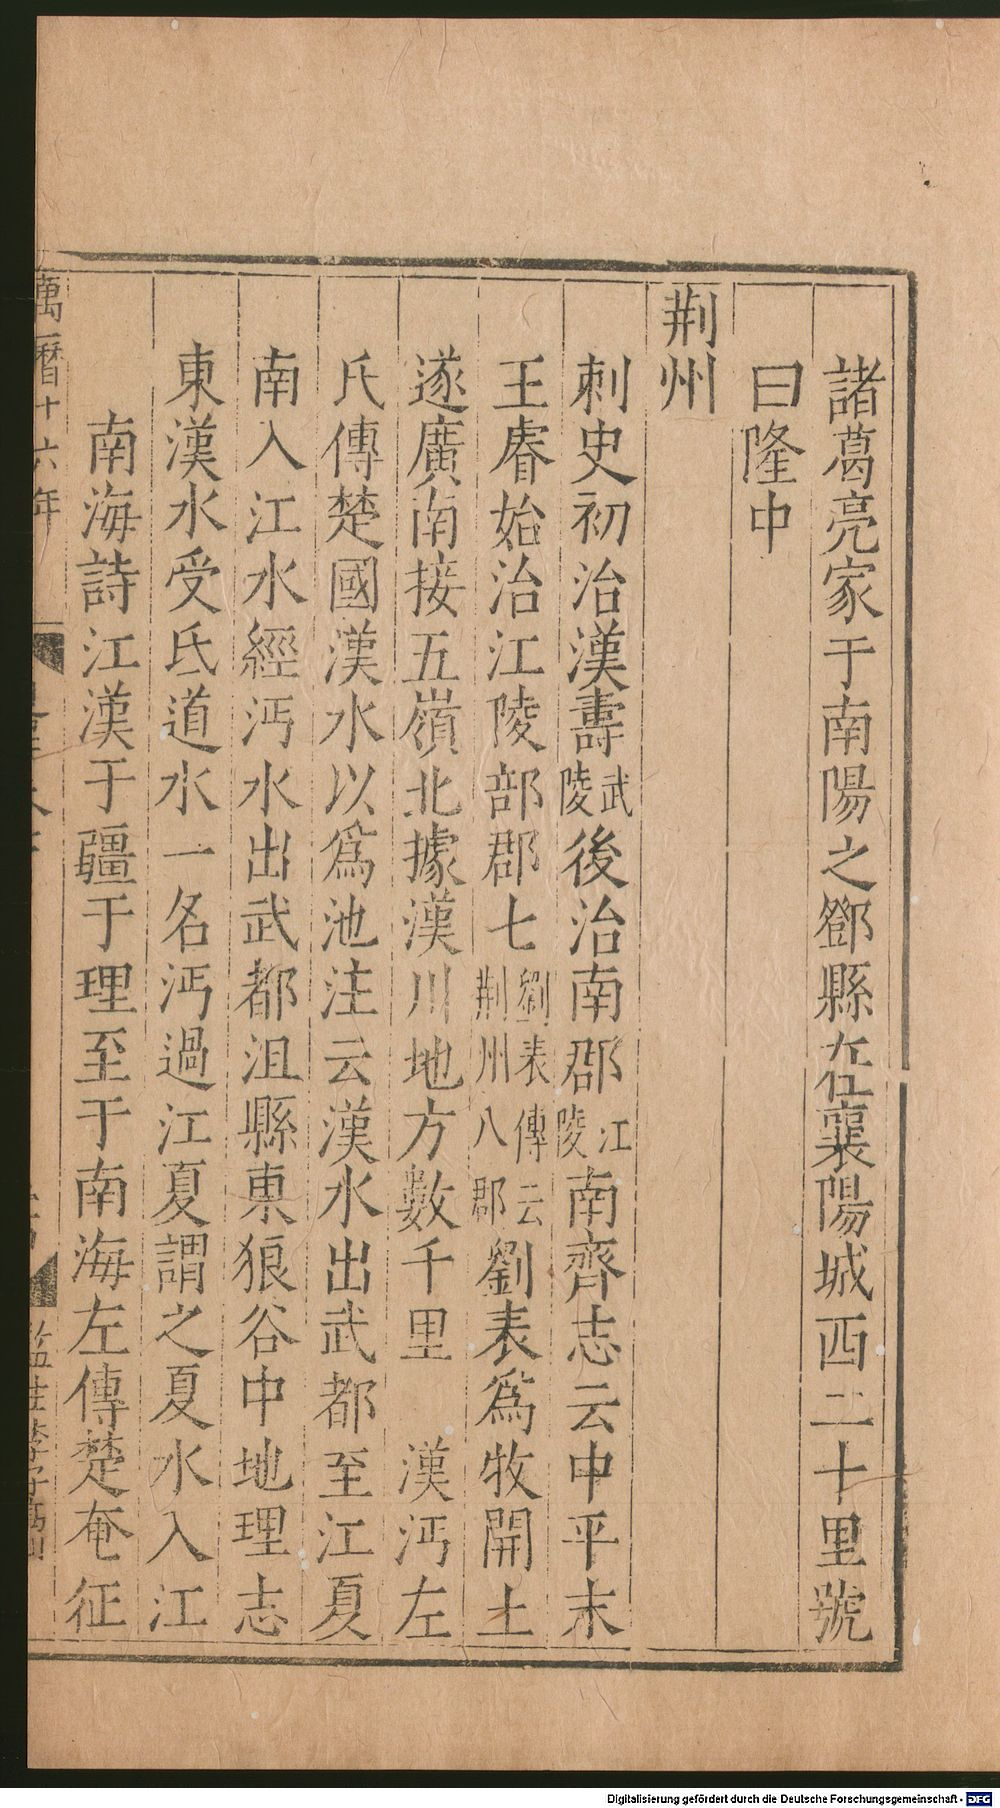 諸葛亮家于南陽之鄧縣在襄陽城西二十里號
曰隆中
荆州
刺史初治漢壽武陵後治南郡江陵南齊志云中平末
王睿始治江陵部郡七劉表傳云荆州八郡劉表爲牧開土
遂廣南接五嶺北據漢川地方數千里 漢沔左
氏傳楚國漢水以爲池注云漢水出武都至江夏
南入江水經沔水出武都沮縣東狼谷中地理志
東漢水受氐道水一名沔過江夏謂之夏水入江
南海詩江漢于疆于理至于南海左傳楚奄征
萬曆十六年
Digitalisierung gefördert durch die Deutsche Forschungsgemeinschaft - DFG